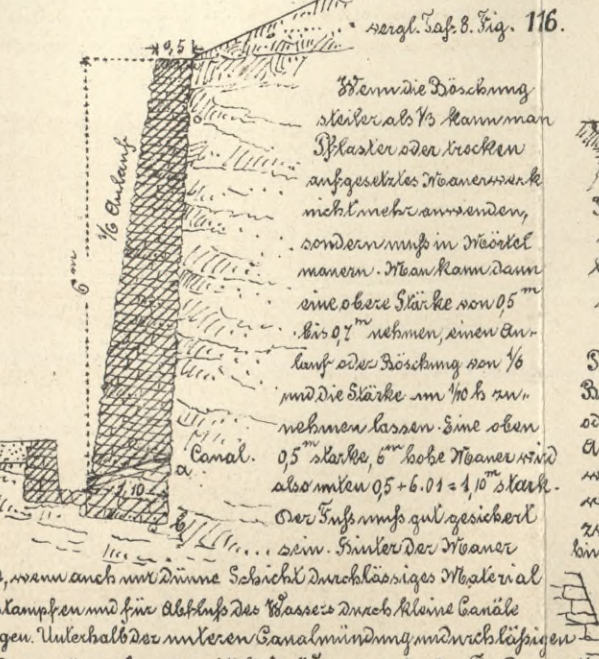 vergl. Taf. 8. Fig. 116.
0,5
Wenn die Böschung
steiler als 1/3 kann man
Pflaster oder trocken
aufgesetztes Mauerwerk
nicht mehr anwenden,
sondern muſs in Mörtel
mauern. Man kann dann
eine obere Stärke von 0,5 m
bis 0,7 m nehmen, einen An-
lauf oder Böschung von 1/6
und die Stärke um 1/10 h zu-
nehmen lassen. Eine oben
0,5 m starke, 6 m hohe Mauer wird
also unten 0,5 + 6.01 = 1,10 m stark.
Der Fuſs muſs gut gesichert
sein. Hinter der Mauer
wenn auch nur dünne Schicht durchlässiges Material
stampfen und für Abfluſs des Wassers durch kleine Canäle
gen. Unterhalb der unteren Canalmündung undurchläſsigen
1/6 Anlauf
6 m
Canal.
a
1,10
b